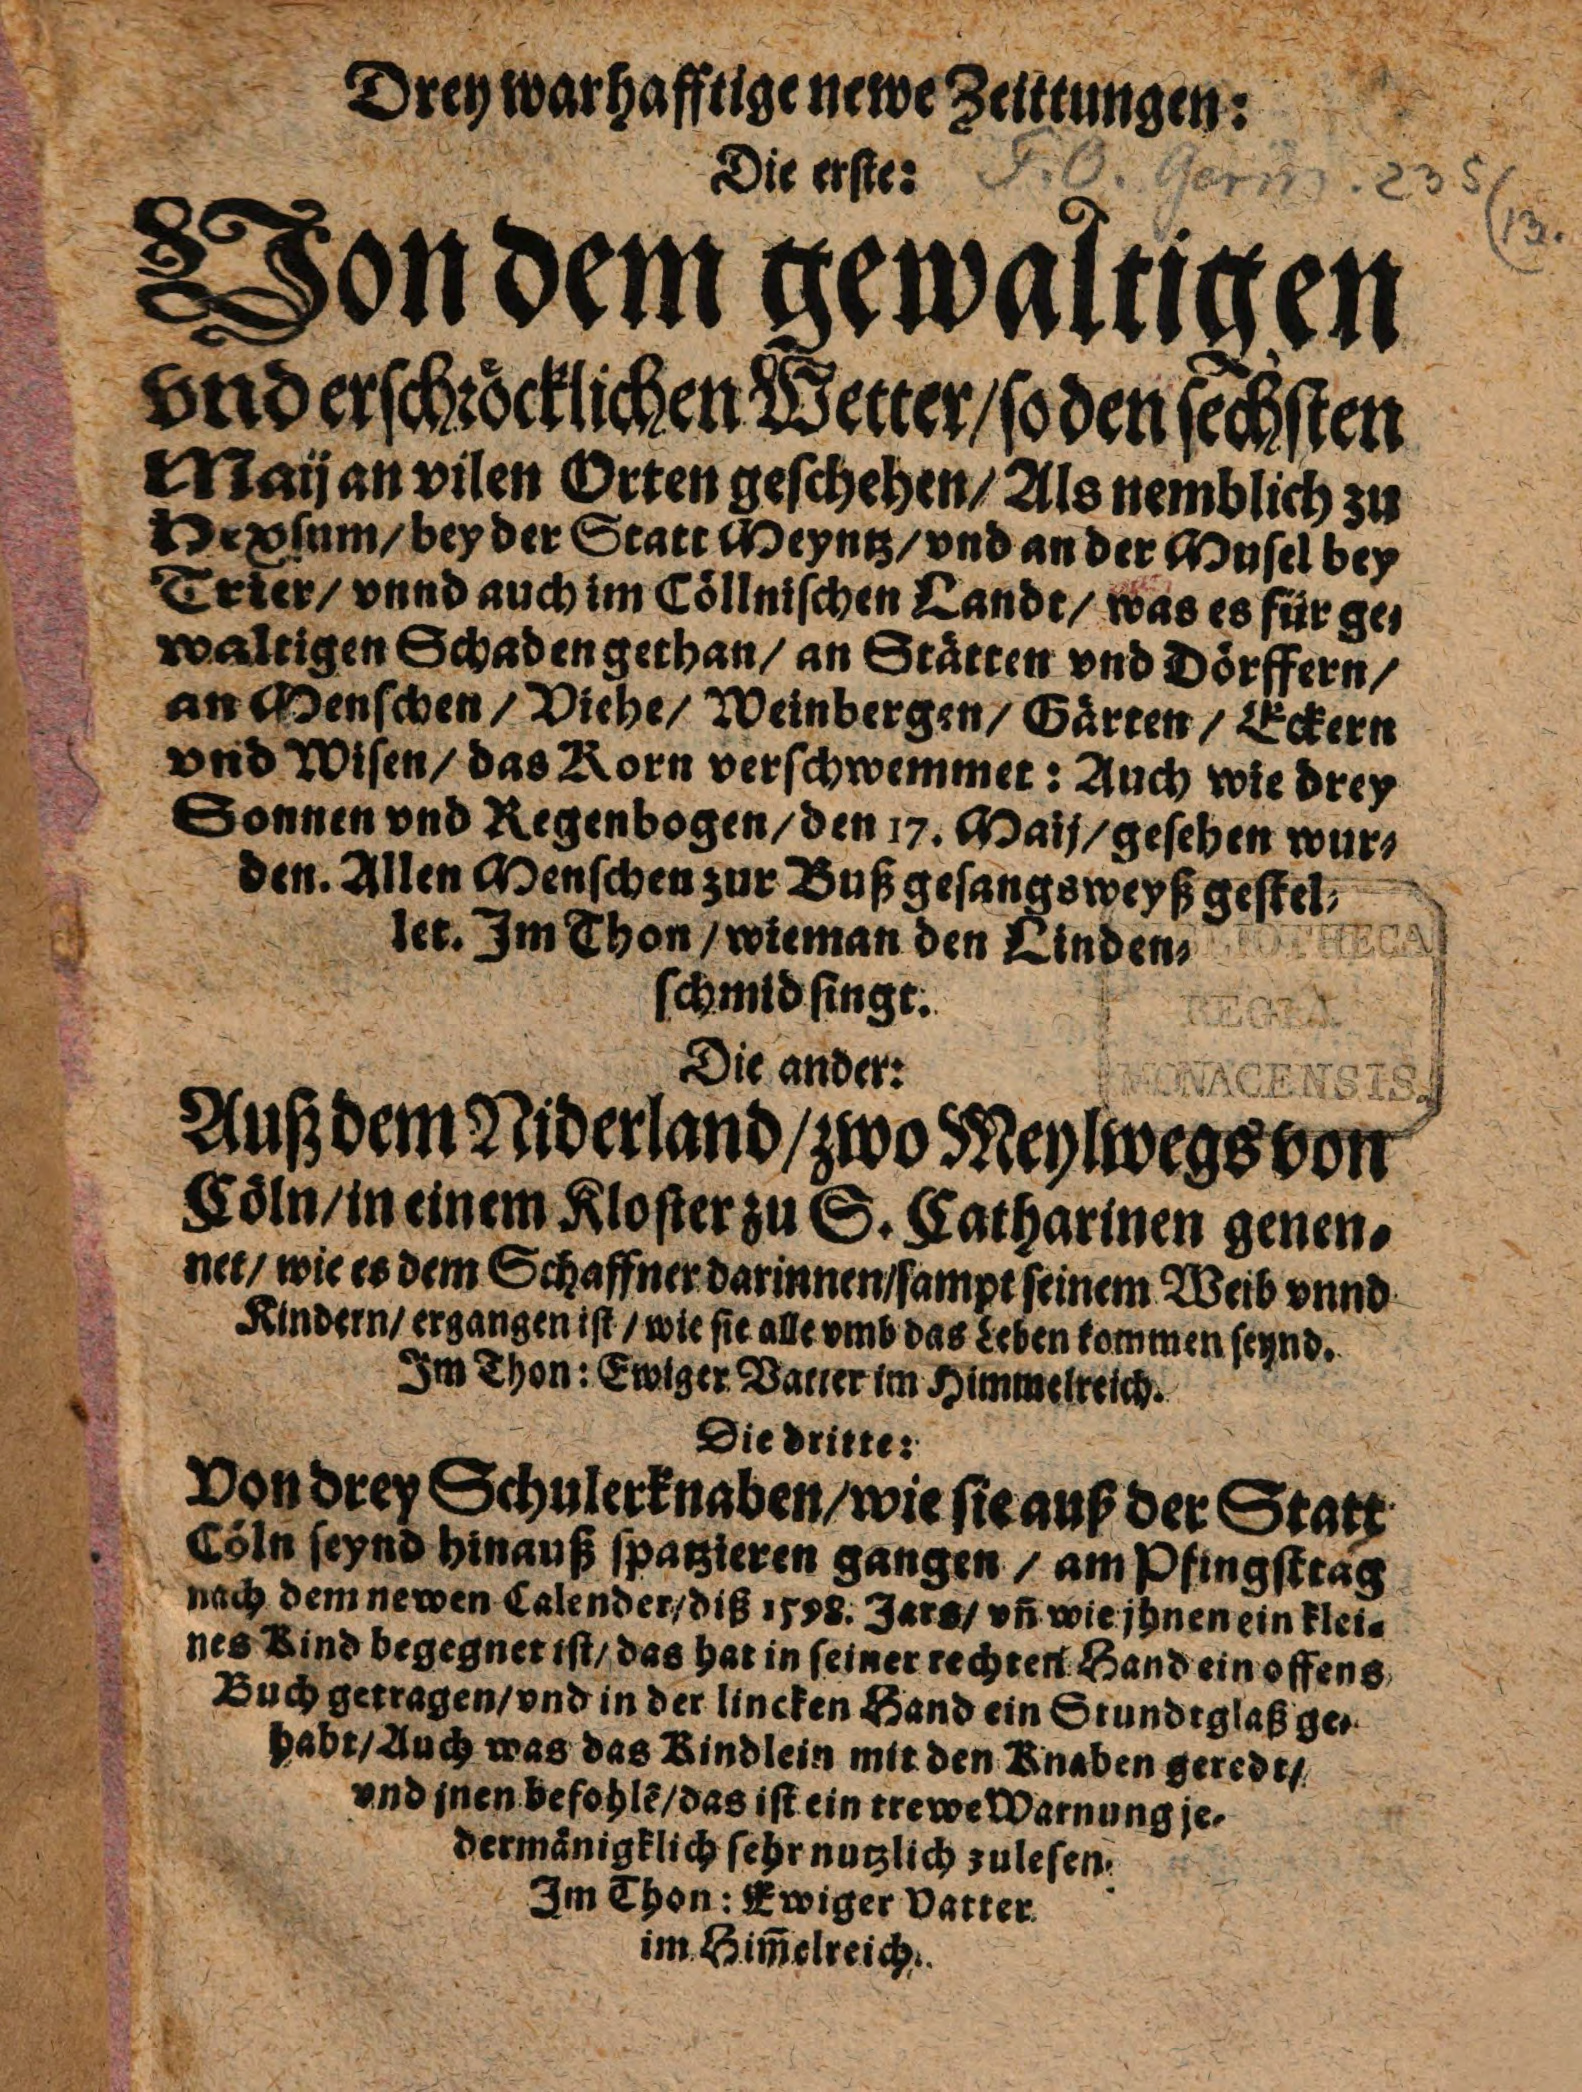 Drey warhafftige newe Zeittungen:
Die erste:
F.O. Germ. 235
(13.
Von dem gewaltigen
vnd erschröcklichen Wetter/ so den sechsten
Maij an vilen Orten geschehen/ Als nemblich zu
bey der Statt Meyntz/ vnd an der Musel bey
Trier/ vnnd auch im Cöllnischen Landt/ was es für ge-
waltigen Schaden gethan/ an Stätten vnd Dörffern/
an Menschen/ Viehe/ Weinbergen/ Gärten/ Eckern
vnd Wisen/ das Korn verschwemmet: Auch wie drey
Sonnen vnd Regenbogen/ den 17. Maij/ gesehen wur-
den. Allen Menschen zur Buß gesangsweyß gestel-
let. Im Thon/ wie man den Linden-
schmid singt.
BIBLIOTHECA
REGIA
MONACENSIS.
Die ander:
Auß dem Niderland/ zwo Meylwegs von
Cöln/ in einem Kloster zu S. Catharinen genen-
net/ wie es dem Schaffner darinnen/ sampt seinem Weib vnnd
Kindern/ ergangen ist/ wie sie alle vmb das Leben kommen seynd.
Im Thon: Ewiger Vatter im Himmelreich.
Die dritte:
Von drey Schulerknaben/ wie sie auß der Statt
Cöln seynd hinauß spatzieren gangen/ am Pfingsttag
nach dem newen Calender/ diß 1598. Jars/ vñ wie jhnen ein klei-
nes Kind begegnet ist/ das hat in seiner rechten Hand ein offens
Buch getragen/ vnd in der lincken Hand ein Stundtglaß ge-
habt/ Auch was das Kindlein mit den Knaben geredt/
vnd jnen befohlẽ/ das ist ein trewe Warnung je-
dermänigklich sehr nutzlich zulesen.
Im Thon: Ewiger Vatter
im Him̃elreich.